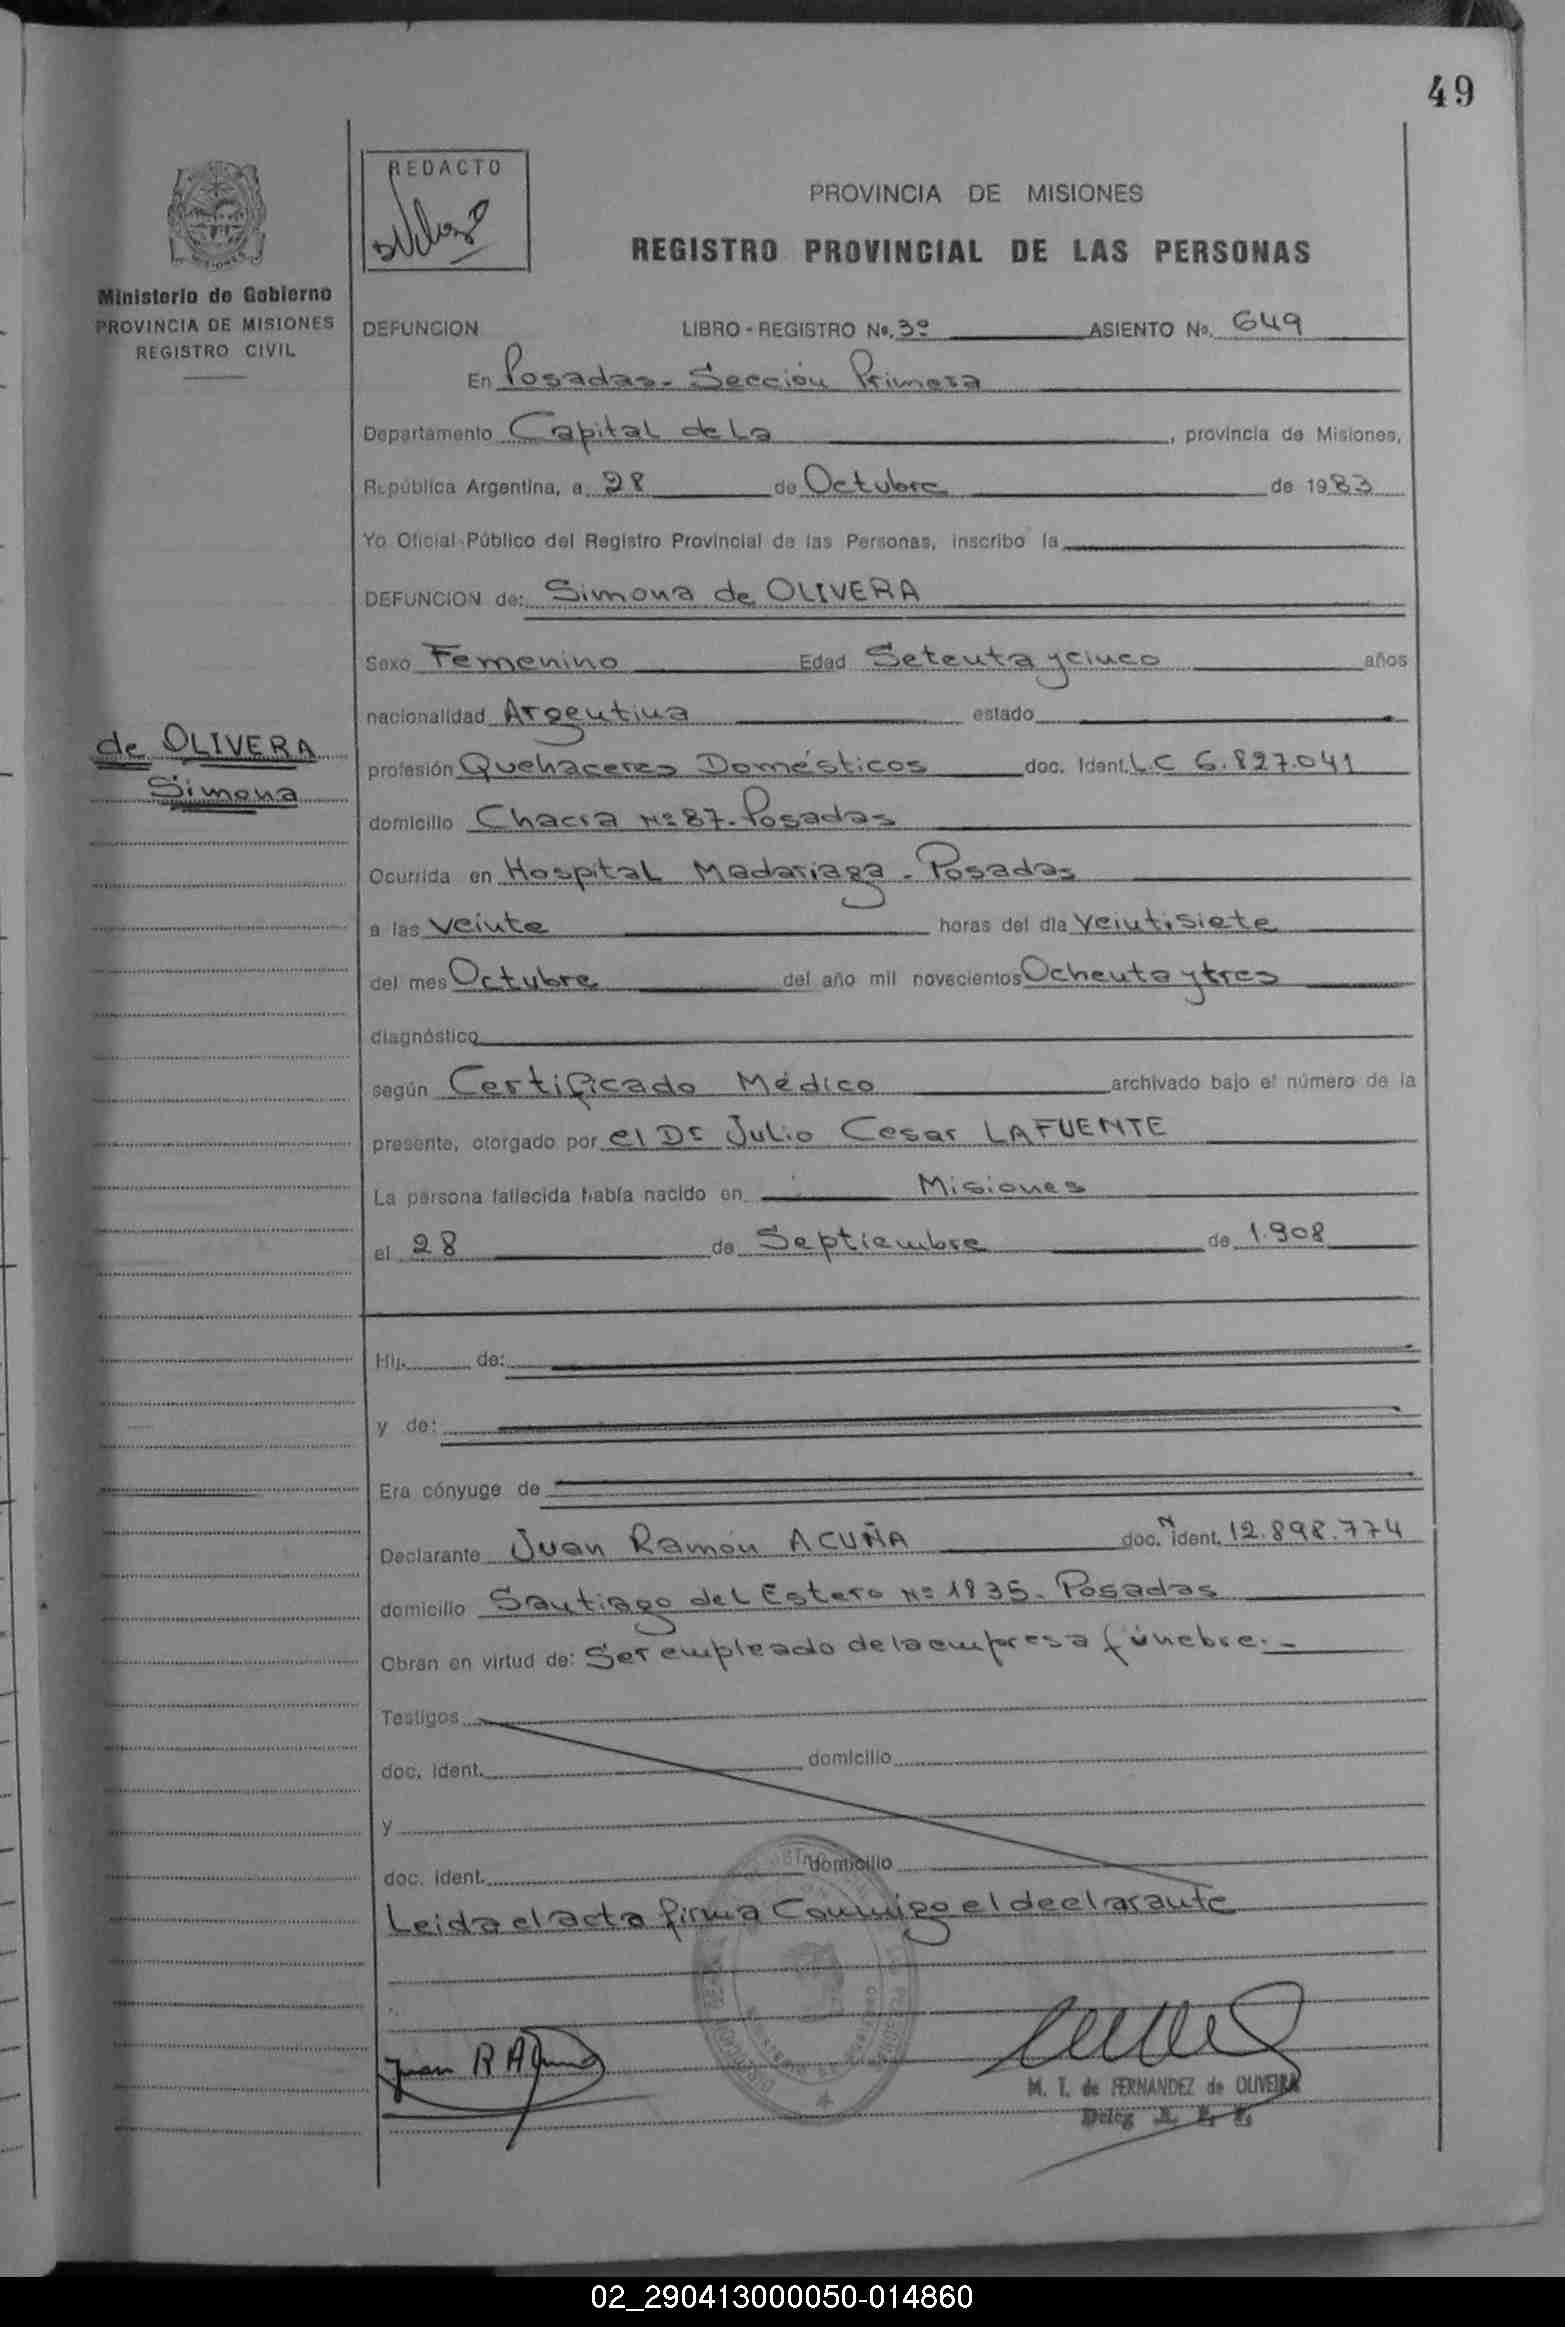 49
REDACTO
PROVINCIA DE MISIONES
REGISTRO PROVINCIAL DE LAS PERSONAS
MISIONES
Ministerio de Gobierno
PROVINCIA DE MISIONES
REGISTRO CIVIL
DEFUNCION LIBRO - REGISTRO No. 3º ASIENTO No. 649
En Posadas - Sección Primera
Departamento Capital de La, provincia de Misiones,
República Argentina, a 28 de Octubre de 1983
Yo Oficial Público del Registro Provincial de las Personas, inscribo la
DEFUNCION de: Simona de OLIVERA
Sexo Femenino Edad Setenta y cinco años
nacionalidad Argentina estado
de OLIVERA
Simona
profesión Quehaceres Domésticos doc. Ident. L.C 6.827.041
domicilio Chacra Nº 87. Posadas
Ocurrida en Hospital Madariaga - Posadas
a las veinte horas del día veintisiete
del mes Octubre del año mil novecientos Ochenta y tres
diagnóstico
según Certificado Médico archivado bajo el número de la
presente, otorgado por el Dr Julio Cesar LAFUENTE
La persona fallecida había nacido en Misiones
el 28 de Septiembre de 1.908
Hij. de:
y de:
Era cónyuge de
Declarante Juan Ramón ACUÑA doc. N ident. 12.898.774
domicilio Santiago del Estero Nº 1935. Posadas
Obran en virtud de: Ser empleado de la empresa fúnebre.-
Testigos
doc. ident. domicilio
y
doc. ident. domicilio
Leida el acta firma Conmigo el declarante
Juan R A
M. T. de FERNANDEZ de OLIVEIRA
Deleg
02_290413000050-014860